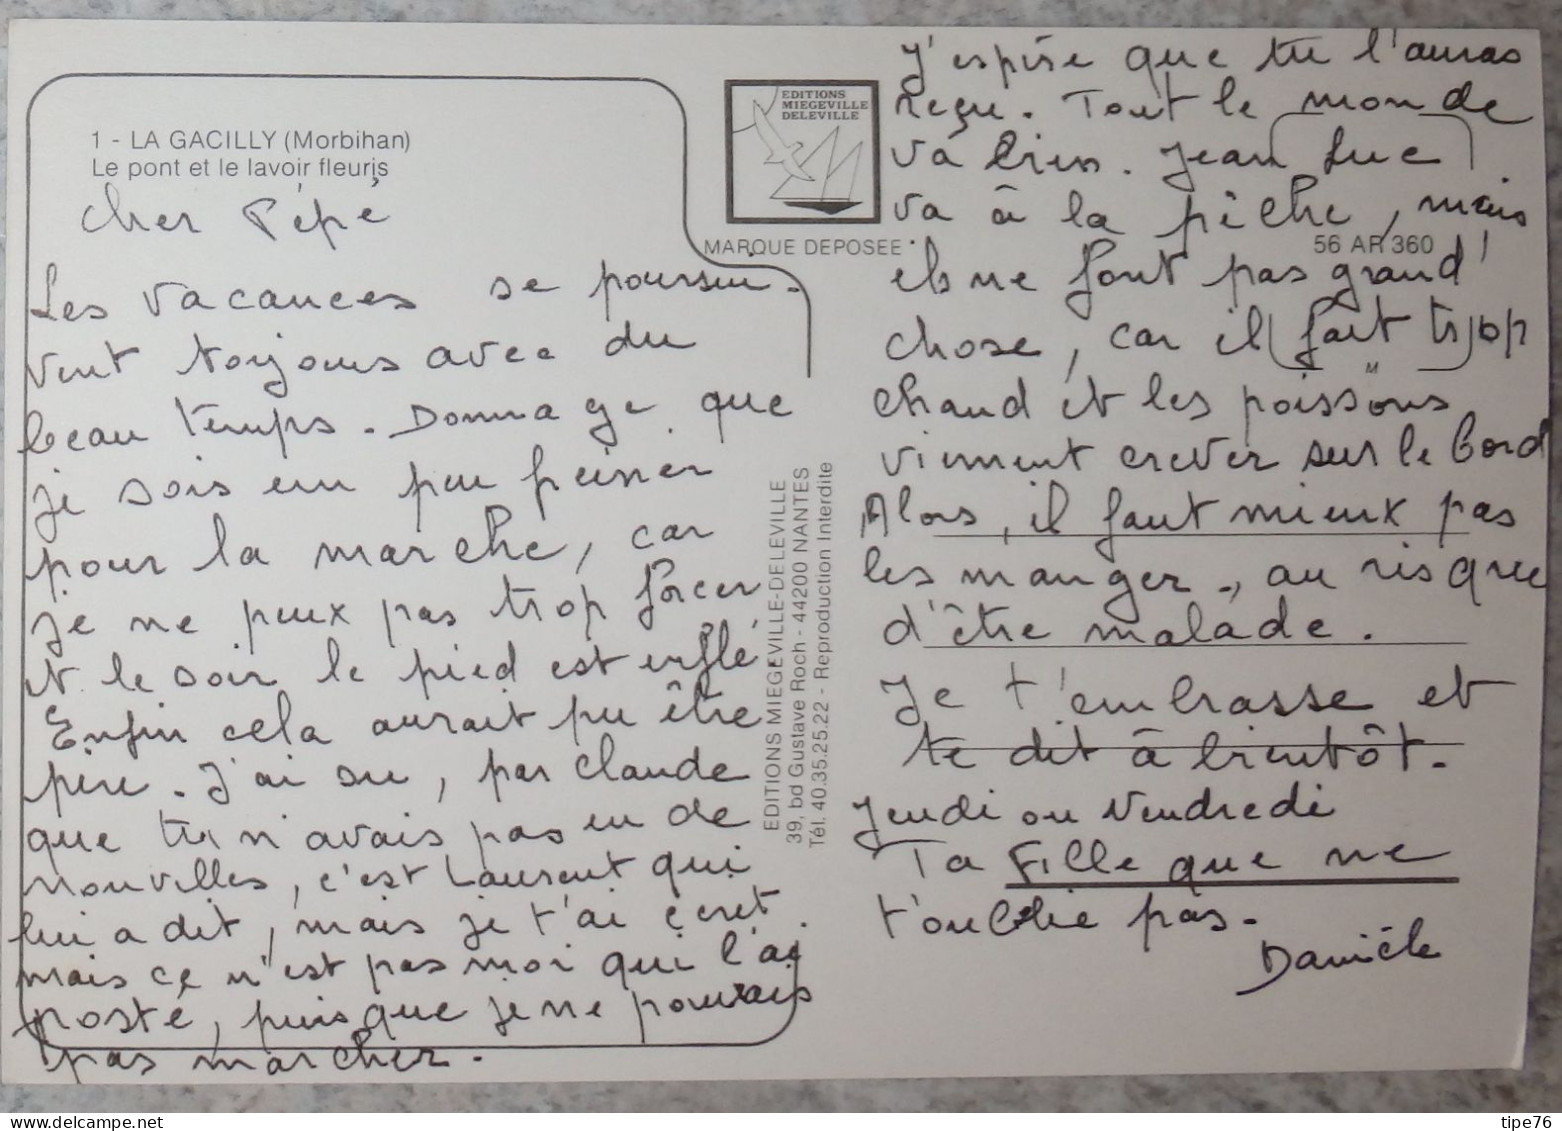 1 - LA GACILLY (Morbihan)
Le pont et le lavoir fleuris
cher Pépé
Les vacances se poursui-
vent toujours avec du
beau temps. Dommage que
je sois un peu peiner
pour la marche, car
je ne peux pas trop forcer
et le soir le pied est enflé
Enfin cela aurait pu être
pire. J'ai su, par Claude
que tu n'avais pas eu de
nouvelles, c'est Laurent qui
lui a dit, mais je t'ai écrit
mais ce n'est pas moi qui l'ai
posté, puisque je ne pouvais
pas marcher.
EDITIONS
MIEGEVILLE
DELEVILLE
MARQUE DEPOSEE
EDITIONS MIEGEVILLE-DELEVILLE
39, bd Gustave Roch - 44200 NANTES
Tél. 40.35.25.22 - Reproduction Interdite
56 AR 360
M
J'espère que tu l'auras
reçu. Tout le monde
va bien. Jean Luc
va à la pêche, mais
ils ne font pas grand'
chose, car il fait trop
chaud et les poissons
viennent crever sur le bord
Alors, il faut mieux pas
les manger, au risque
d'être malade.
Je t'embrasse et
te dit à bientôt.
Jeudi ou Vendredi
Ta Fille que ne
t'oublie pas.
Danièle
delcampe.net
tipe76